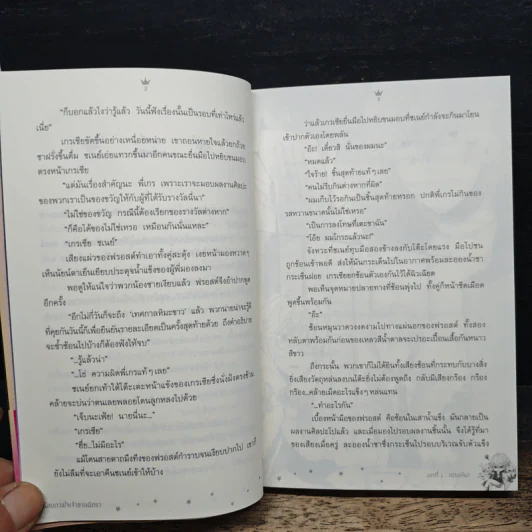 "ก็บอกแล้วไงว่ารู้แล้ว วันนี้ฟังเรื่องนั้นเป็นรอบที่เท่าไหร่แล้ว
เนี่ย"
เกรเซียขัดขึ้นอย่างเหนื่อยหน่าย เขาถอนหายใจแล้วยกถ้วย
ชาฝรั่งขึ้นดื่ม ชเนย์เอ่ยแทรกขึ้นมาอีกคนขณะยื่นมือไปหยิบขนมอบ
ตรงหน้าเกรเซีย
"แต่มันเรื่องสำคัญนะ พี่เกร เพราะเราจะมอบผลงานศิลปะ
ของพวกเราเป็นของขวัญให้กับผู้ที่ได้รับรางวัลนี่นา"
"ไม่ใช่ของขวัญ กรณีนี้ต้องเรียกของรางวัลต่างหาก"
"ก็คือได้ของไม่ใช่เหรอ เหมือนกันนั่นแหละ"
"เกรเซีย ชเนย์"
เสียงแผ่วของฟรอสต์ทำเอาทั้งคู่สะดุ้ง เงยหน้ามองหวาดๆ
เห็นนัยน์ตาเย็นเยียบประดุจน้ำแข็งของผู้พี่มองลงมา
พอดูให้แน่ใจว่าพวกน้องชายเงียบแล้ว ฟรอสต์จึงย้ำปากพูด
อีกครั้ง
"อีกไม่กี่วันก็จะถึง 'เทศกาลหิมะขาว' แล้ว พวกนายน่าจะรู้ดี
ที่คุยกันวันนี้ก็เพื่อยืนยันรายละเอียดเป็นครั้งสุดท้ายด้วย ถึงคำอธิบาย
จะซ้ำซ้อนไปบ้างก็ต้องฟังให้จบ"
"...รู้แล้วน่า"
"...โธ่ ความผิดพี่เกรแท้ๆ เลย"
ชเนย์ยกเท้าใต้โต๊ะเตะหน้าแข้งของเกรเซียซึ่งนั่งฝั่งตรงข้าม
คล้ายจะบ่นว่าตนเลยพลอยโดนลูกหลงไปด้วย
"เจ็บนะเฟ้ย! นายนี่นะ..."
"เกรเซีย"
"ฮึ่ย...ไม่มีอะไร"
แม้โดนสายตาถมึงทึงของฟรอสต์กำราบจนเงียบปากไป เขาก็
ยังไม่ลืมที่จะเอาคืนชเนย์เข้าให้บ้าง
ว่าแล้วเกรเซียยื่นมือไปหยิบขนมอบที่ชเนย์กำลังจะกินมาโยน
เข้าปากตัวเองโดยพลัน
"อ๊ะ! เดี๋ยวสิ นั่นของผมนะ"
"หมดแล้ว"
"ใจร้าย! ชิ้นสุดท้ายแท้ๆ เลย"
"คนไม่รีบกินต่างหากที่ผิด"
"ผมเก็บไว้รอกินเป็นชิ้นสุดท้ายหรอก ปกติพี่เกรไม่กินของ
รสหวานขนาดนั้นไม่ใช่เหรอ"
"เป็นการลงโทษที่เตะขาฉัน"
"โอ๊ย ผมโกรธแล้วนะ!"
จังหวะที่ชเนย์ทุบมือสองข้างลงกับโต๊ะโดยแรง มือไปชน
ถูกช้อนเข้าพอดี ส่งให้มันกระเด็นไปในอากาศพร้อมละอองน้ำชา
กระเซ็นฝอย เกรเซียยกช้อนตัวเองกันไว้ได้ฉิวเฉียด
พอเห็นจุดหมายปลายทางที่ช้อนพุ่งไป ทั้งคู่ก็หน้าซีดเผือด
พูดขึ้นพร้อมกัน
"อ๊ะ"
ช้อนหมุนวาดวงตงามไปทางแผ่นอกของฟรอสต์ ทั้งสอง
หลับตาพร้อมกันก่อนของเหลวสีน้ำตาลจะเปรอะเปื้อนเสื้อกันหนาว
สีขาว
ถึงกระนั้น พวกเขาก็ไม่ได้ยินทั้งเสียงช้อนที่กระทบกับบางสิ่ง
ยิ่งเสียงวัตถุหล่นลงบนโต๊ะยิ่งไม่ต้องพูดถึง กลับมีเสียงกร๊อง กร๊อง
กร๊อง...คล้ายเม็ดอะไรแข็งๆ หล่นแทน
"...ทำอะไรกัน"
เบื้องหน้ามือของฟรอสต์ คือช้อนในเสาน้ำแข็ง มันกลายเป็น
ผลงานศิลปะไปแล้ว และเมื่อมองไปรอบผลงานชิ้นนั้น จึงได้รู้ที่มา
ของเสียงเมื่อครู่ ละอองน้ำชาซึ่งกระเซ็นไปรอบบริเวณจับตัวแข็ง